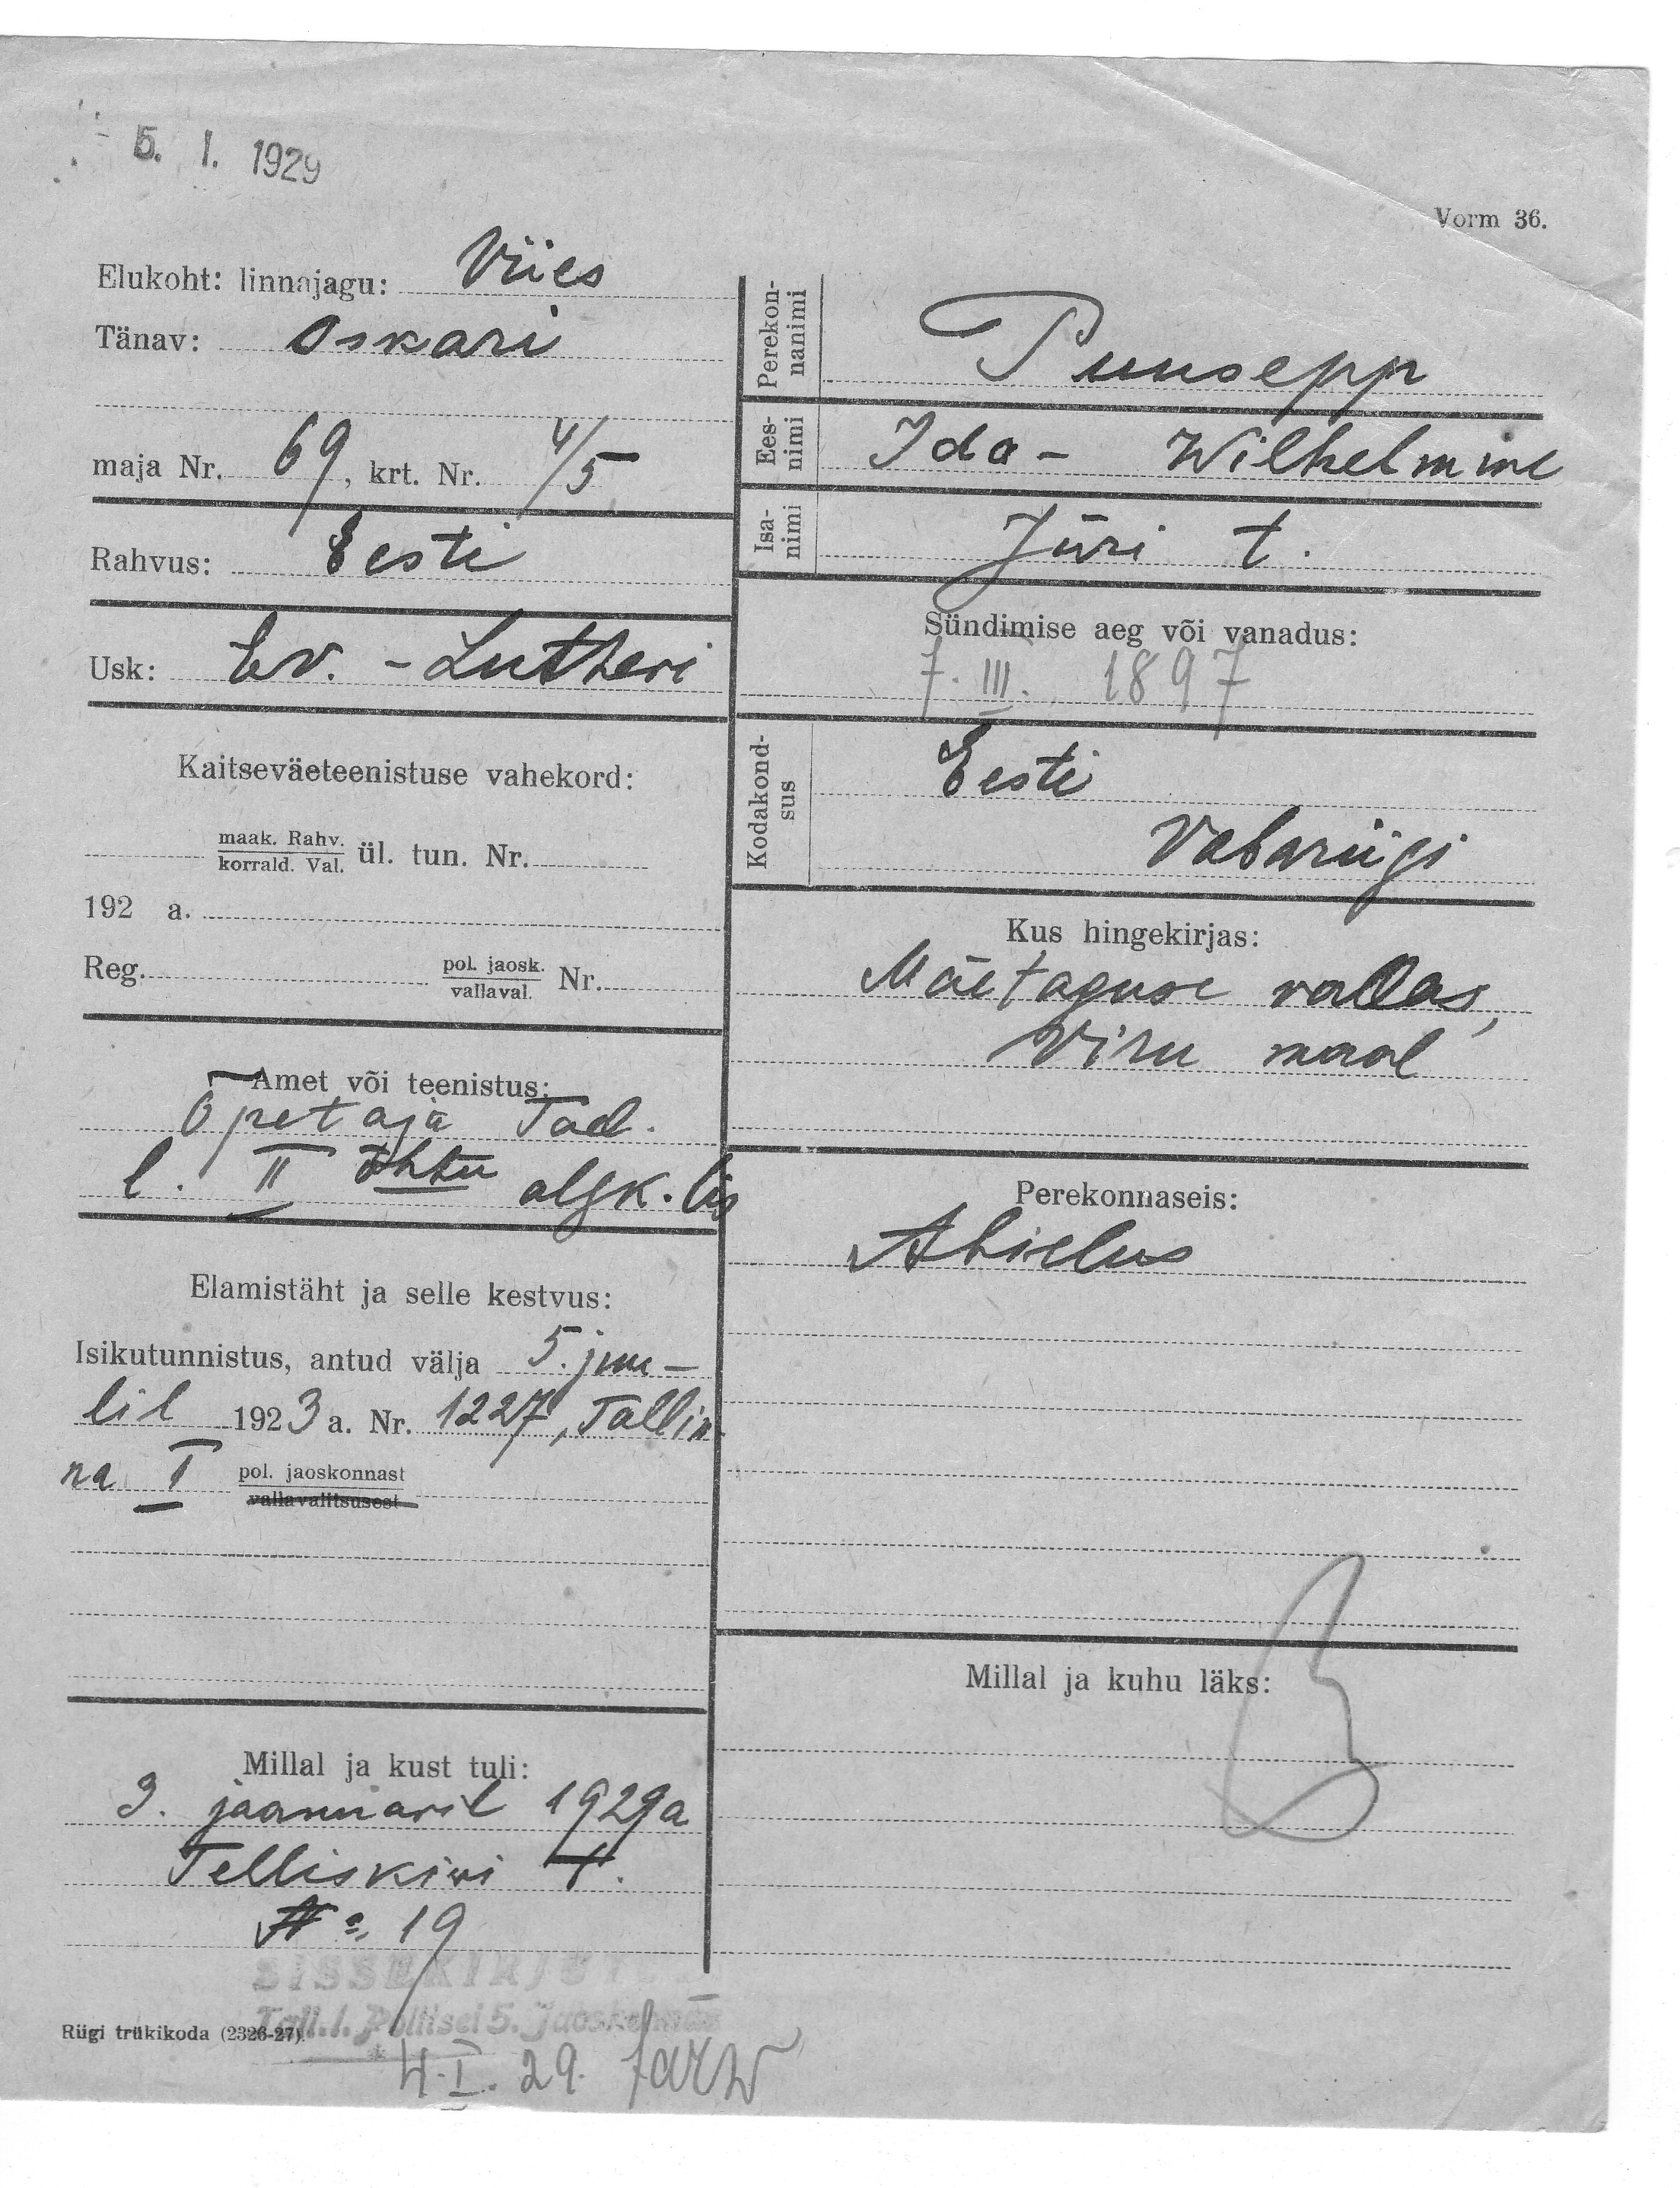 - 5. I. 1929
Vorm 36.
Elukoht: linnajagu: Viies
Tänav: Oskari
maja Nr. 69, krt. Nr. 4/5
Rahvus: Eesti
Usk: Ev. - Lutheri
Kaitseväeteenistuse vahekord:
maak. Rahv.
korrald. Val. ül. tun. Nr.
192 a.
Reg. pol. jaosk.
vallaval. Nr.
Amet või teenistus:
Õpetaja Tad.
l. II Õhtu algk. lis
Elamistäht ja selle kestvus:
Isikutunnistus, antud välja 5. juu-
lil 1923 a. Nr. 1227, Tallin
na I pol. jaoskonnast
vallavalitsusest
Millal ja kust tuli:
3. jaanuaril 1929 a
Telliskivi t.
No. 19
SISSEKIRJUT
Tall. l. Politsei 5. Jaoskonnas
Riigi trükikoda (2326-27).
4. I. 29.
Perekon-
nanimi
Puusepp
Ees-
nimi
Ida - Wilhelmine
Isa-
nimi
Jüri t.
Sündimise aeg või vanadus:
7. III. 1897
Kodakond-
sus
Eesti
Vabariigi
Kus hingekirjas:
Mäetaguse vallas,
Viru maal
Perekonnaseis:
Abielus
Millal ja kuhu läks: